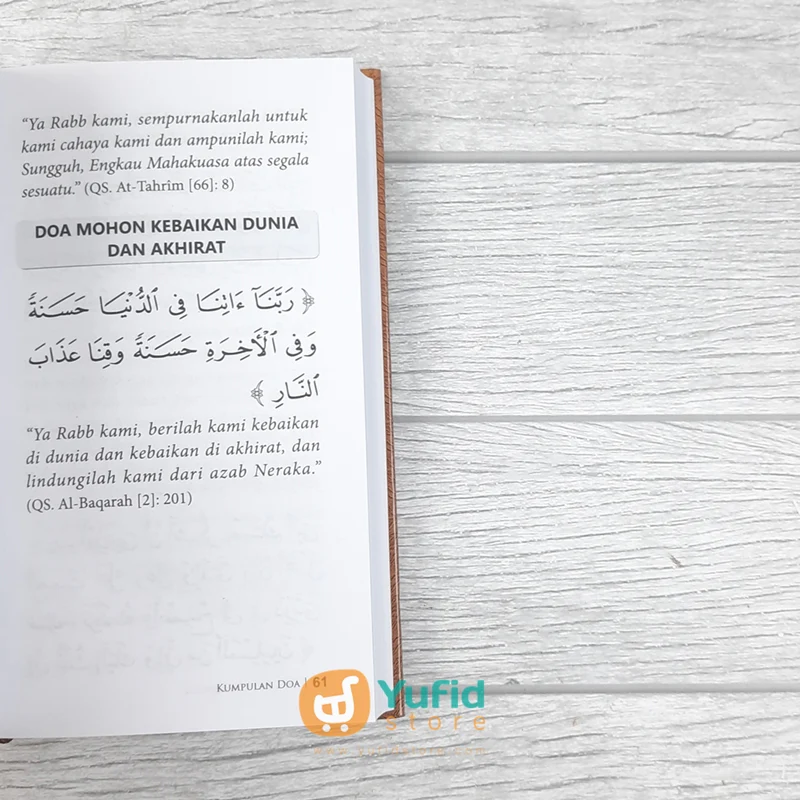 “Ya Rabb kami, sempurnakanlah untuk
kami cahaya kami dan ampunilah kami;
Sungguh, Engkau Mahakuasa atas segala
sesuatu.” (QS. At-Tahrîm [66]: 8)
DOA MOHON KEBAIKAN DUNIA
DAN AKHIRAT
﴿ رَبَّنَآ ءَاتِنَا فِي ٱلدُّنْيَا حَسَنَةً
وَفِي ٱلْأَخِرَةِ حَسَنَةً وَقِنَا عَذَابَ
ٱلنَّارِ ﴾
“Ya Rabb kami, berilah kami kebaikan
di dunia dan kebaikan di akhirat, dan
lindungilah kami dari azab Neraka.”
(QS. Al-Baqarah [2]: 201)
Kumpulan Doa | 61
Yufid
store